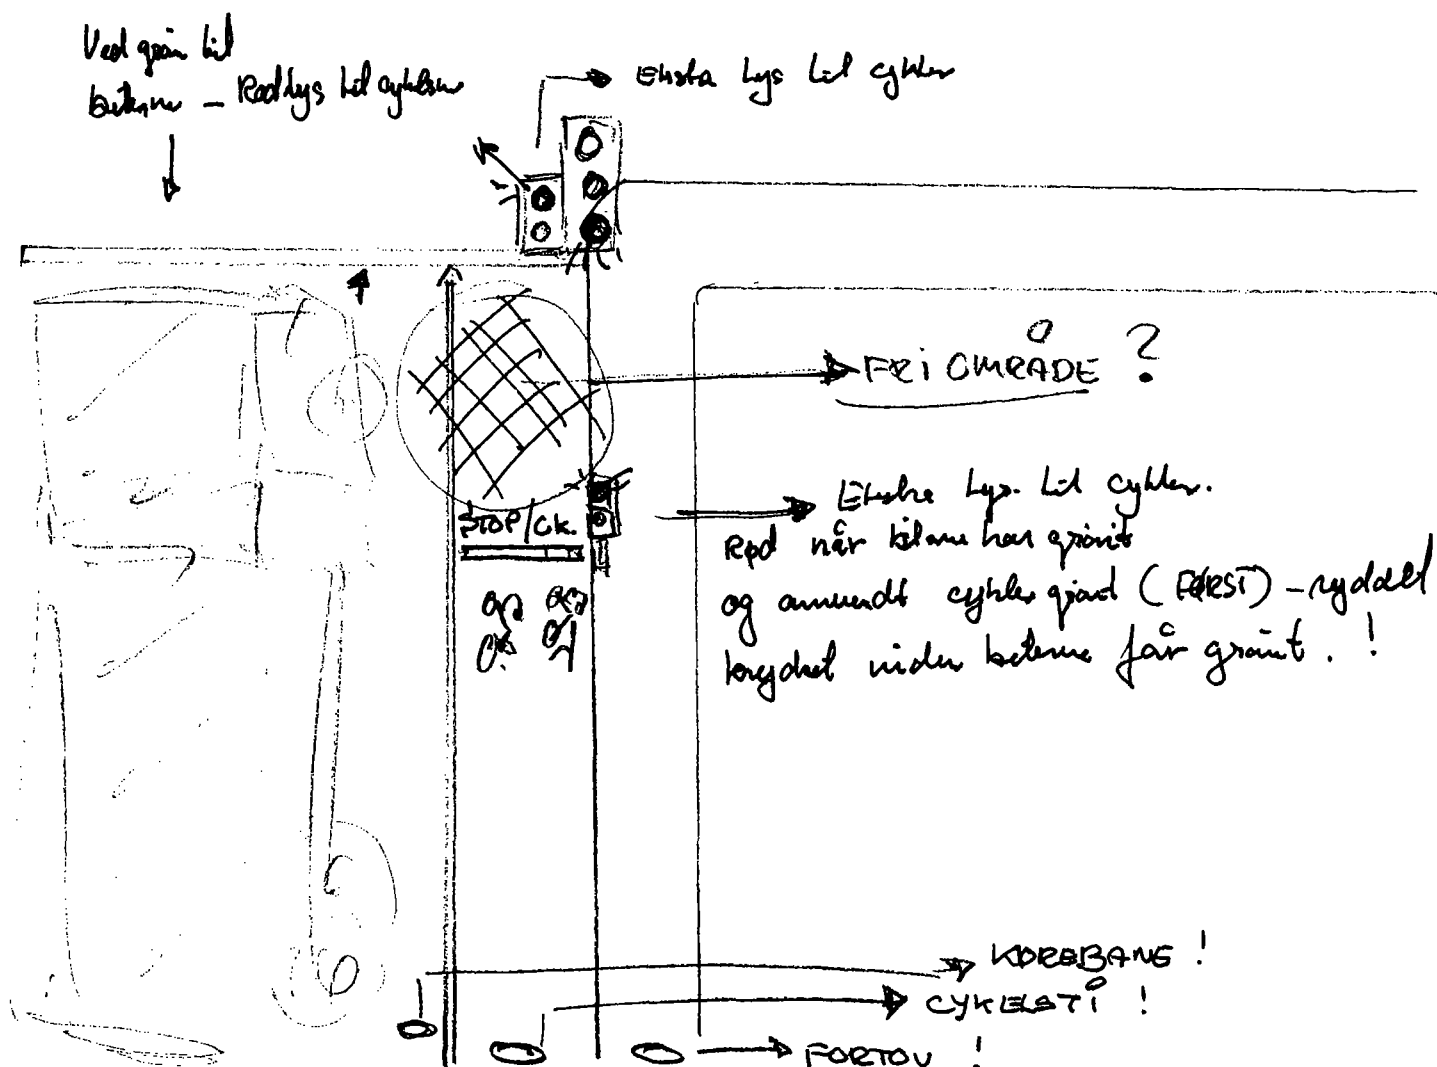 Ved grøn til
bilerne – Rød lys til cyklerne
Ekstra lys til cykler
FRi OMRÅDE ?
STOP/CK.
Ekstra lys til cykler.
Rød når bilerne har grønt
og omvendt cykler grønt (FØRST) – ryddet
krydset inden bilerne får grønt. !
KØREBANE !
CYKELSTI !
FORTOV !